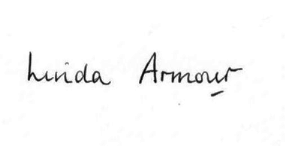 Linda Armour